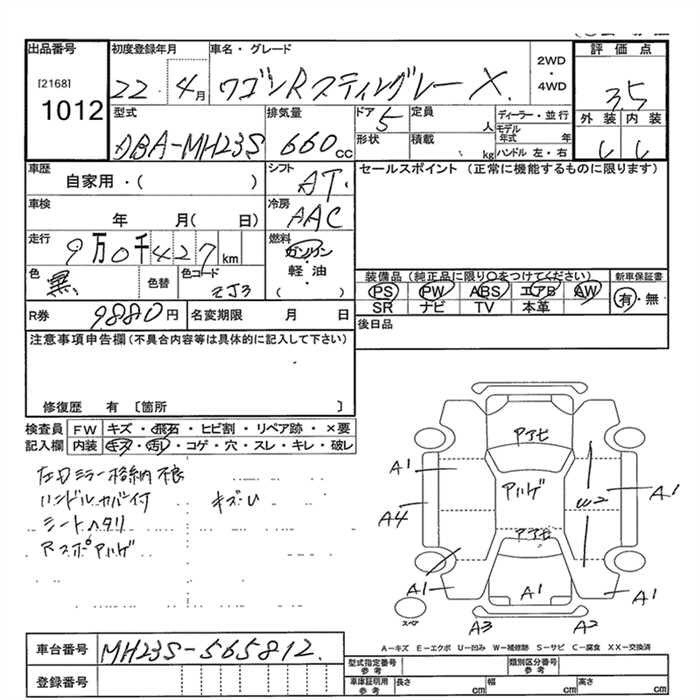 出品番号
[2168]
1012
初度登録年月
22 年 4月
車名・グレード
ワゴンRスティングレー X.
2WD
・
4WD
評価点
3.5
外装 内装
C C
型式
DBA-MH23S
排気量
660cc
ドア 5
形状
定員 人
積載 kg
ディーラー・並行
モデル年式 年
ハンドル 左・右
車歴
自家用・( )
シフト
AT.
セールスポイント (正常に機能するものに限ります)
車検
年 月( 日)
冷房
AAC
走行
9万0千427km
燃料
ガソリン
・
軽油
( )
色
黒
色替
色コード
ZJ3
装備品 (純正品に限り○をつけてください)
PS PW ABS エアB AW
SR ナビ TV 本革
新車保証書
有・無
R券 9880円
名変期限 月 日
後日品
注意事項申告欄(不具合内容等は具体的に記入して下さい)
修復歴 有 〔箇所 〕
検査員 FW キズ・飛石・ヒビ割・リペア跡・×要
記入欄 内装 キズ・汚レ・コゲ・穴・スレ・キレ・破レ
左Dミラー格納不良
ハンドルカバー付 キズU
シートヘタリ
Rスポ アハゲ
アアセ
アハゲ
アアセ
A1
A4
A1
W2
A1
A1
A1
A3
A2
スペア
A-キズ E-エクボ U-凹み W-補修跡 S-サビ C-腐食 XX-交換済
車台番号 MH23S-565812.
登録番号
型式指定番号 参考
類別区分番号 参考
車庫証明用 参考
長さ cm
幅 cm
高さ cm